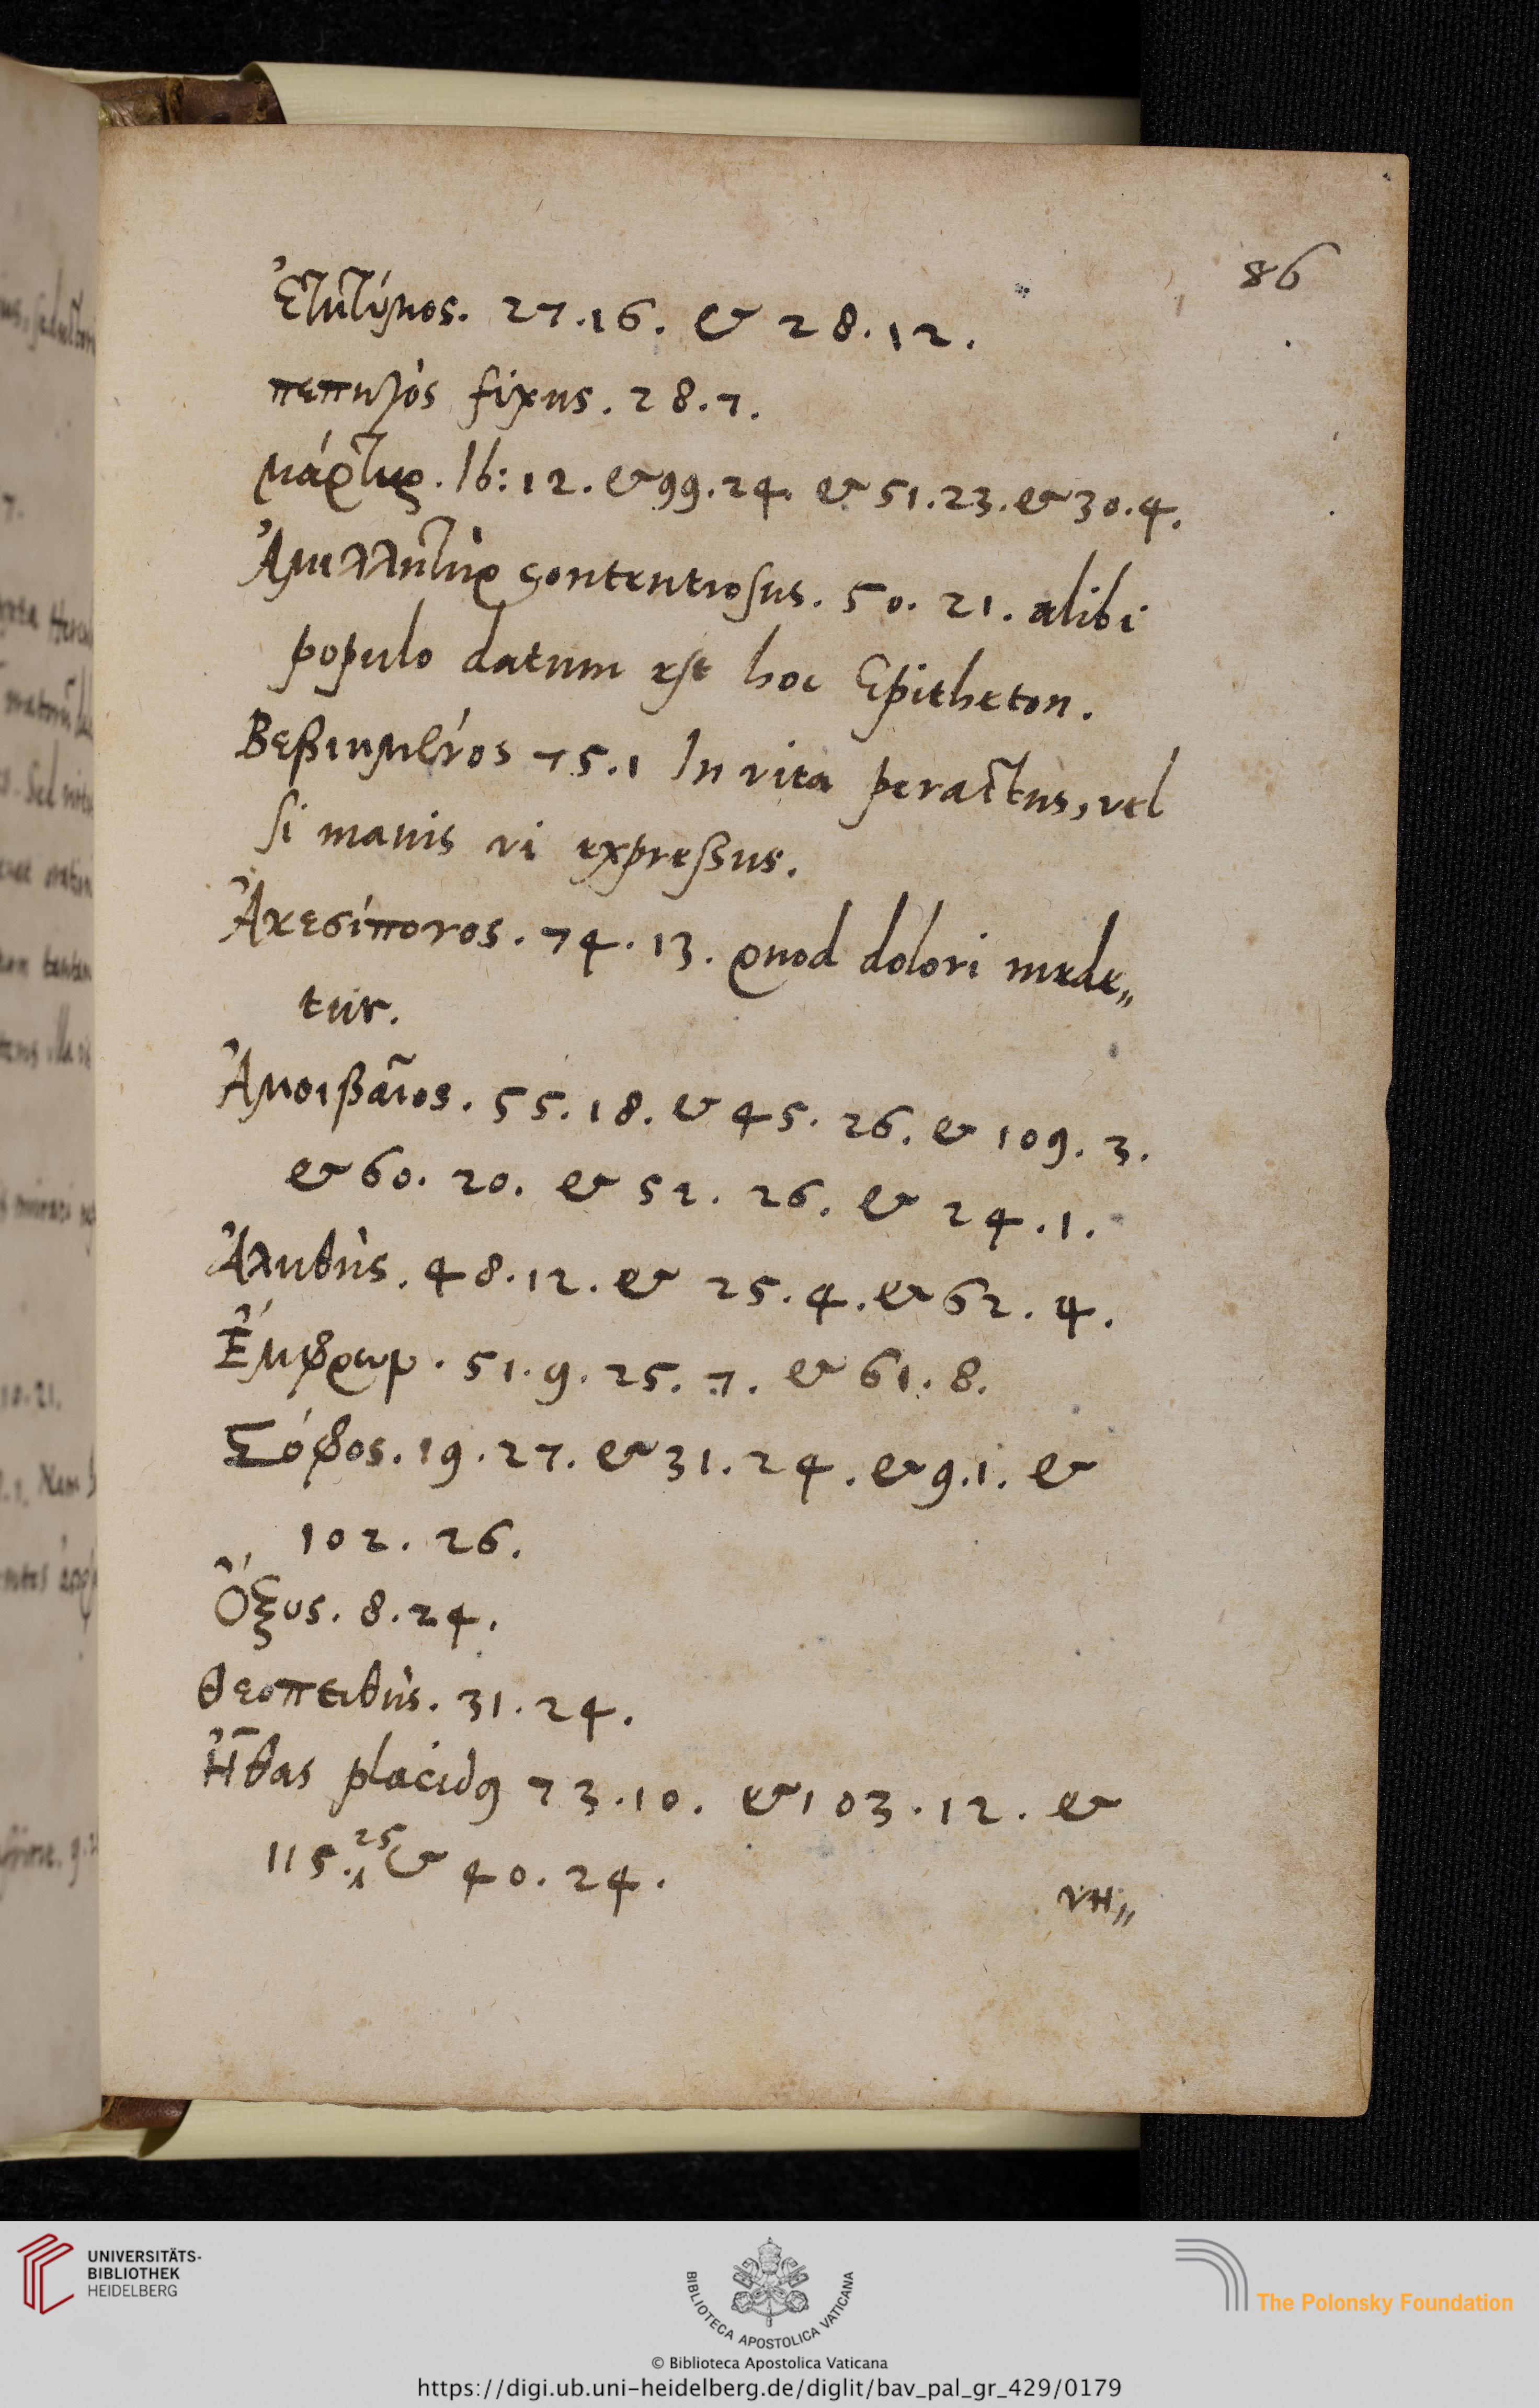 86
Ἐτήτυμος. 27.16. & 28.12.
πεπηγὸς fixus. 28.7.
μάρτυρ. Ib: 12. & 99.24. & 51.23. & 30.4.
Ἁμιλλητὴρ contentiosus. 50. 21. alibi
populo datum est hoc Epitheton.
Βεβιημένος 75.1 In vita peractus, vel
si mauis vi expreßus.
Ἀκεσίπονος. 74. 13. quod dolori mede„
tur.
Ἀμοιβαῖος. 55. 18. & 45. 26. & 109. 3.
& 60. 20. & 52. 26. & 24. 1.
Ἀληθὴς. 48. 12. & 25. 4. & 62. 4.
Ἔμφρων. 51. 9. 25. 7. & 61. 8.
Σόφος. 19. 27. & 31. 24. & 9. 1. &
102. 26.
Ὄξυς. 8. 24.
θεοπειθὴς. 31. 24.
Ἦθας placidus 73. 10. & 103. 12. &
115. 25 & 40. 24.
νη„
UNIVERSITÄTS-
BIBLIOTHEK
HEIDELBERG
BIBLIOTECA APOSTOLICA VATICANA
The Polonsky Foundation
© Biblioteca Apostolica Vaticana
https://digi.ub.uni-heidelberg.de/diglit/bav_pal_gr_429/0179